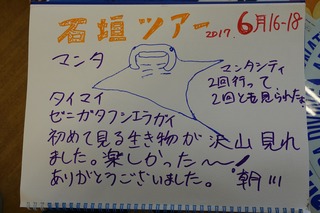 石垣ツアー
2017. 6月16-18
マンタ
マンタシティ
2回行って
2回とも見られたよ
タイマイ
ゼニガタフシエラガイ
初めて見る生き物が沢山見れ
ました。楽しかった〜!
ありがとうございました。朝川